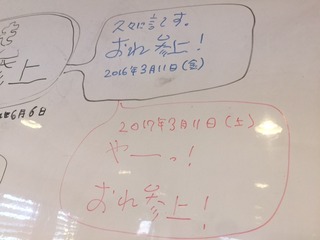 参上
6月6日
久々に言です。
おれ参上!
2016年3月11日(金)
2017年3月11日(土)
やーっ!
おれ参上!